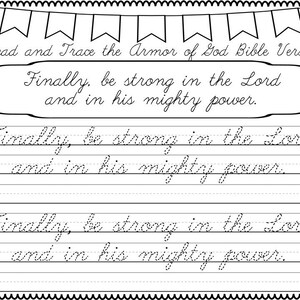 and Trace the Armor of God Bible
Finally, be strong in the Lord
and in his mighty power.
Finally, be strong in the
and in his mighty power.
Finally, be strong in the
and in his mighty power.